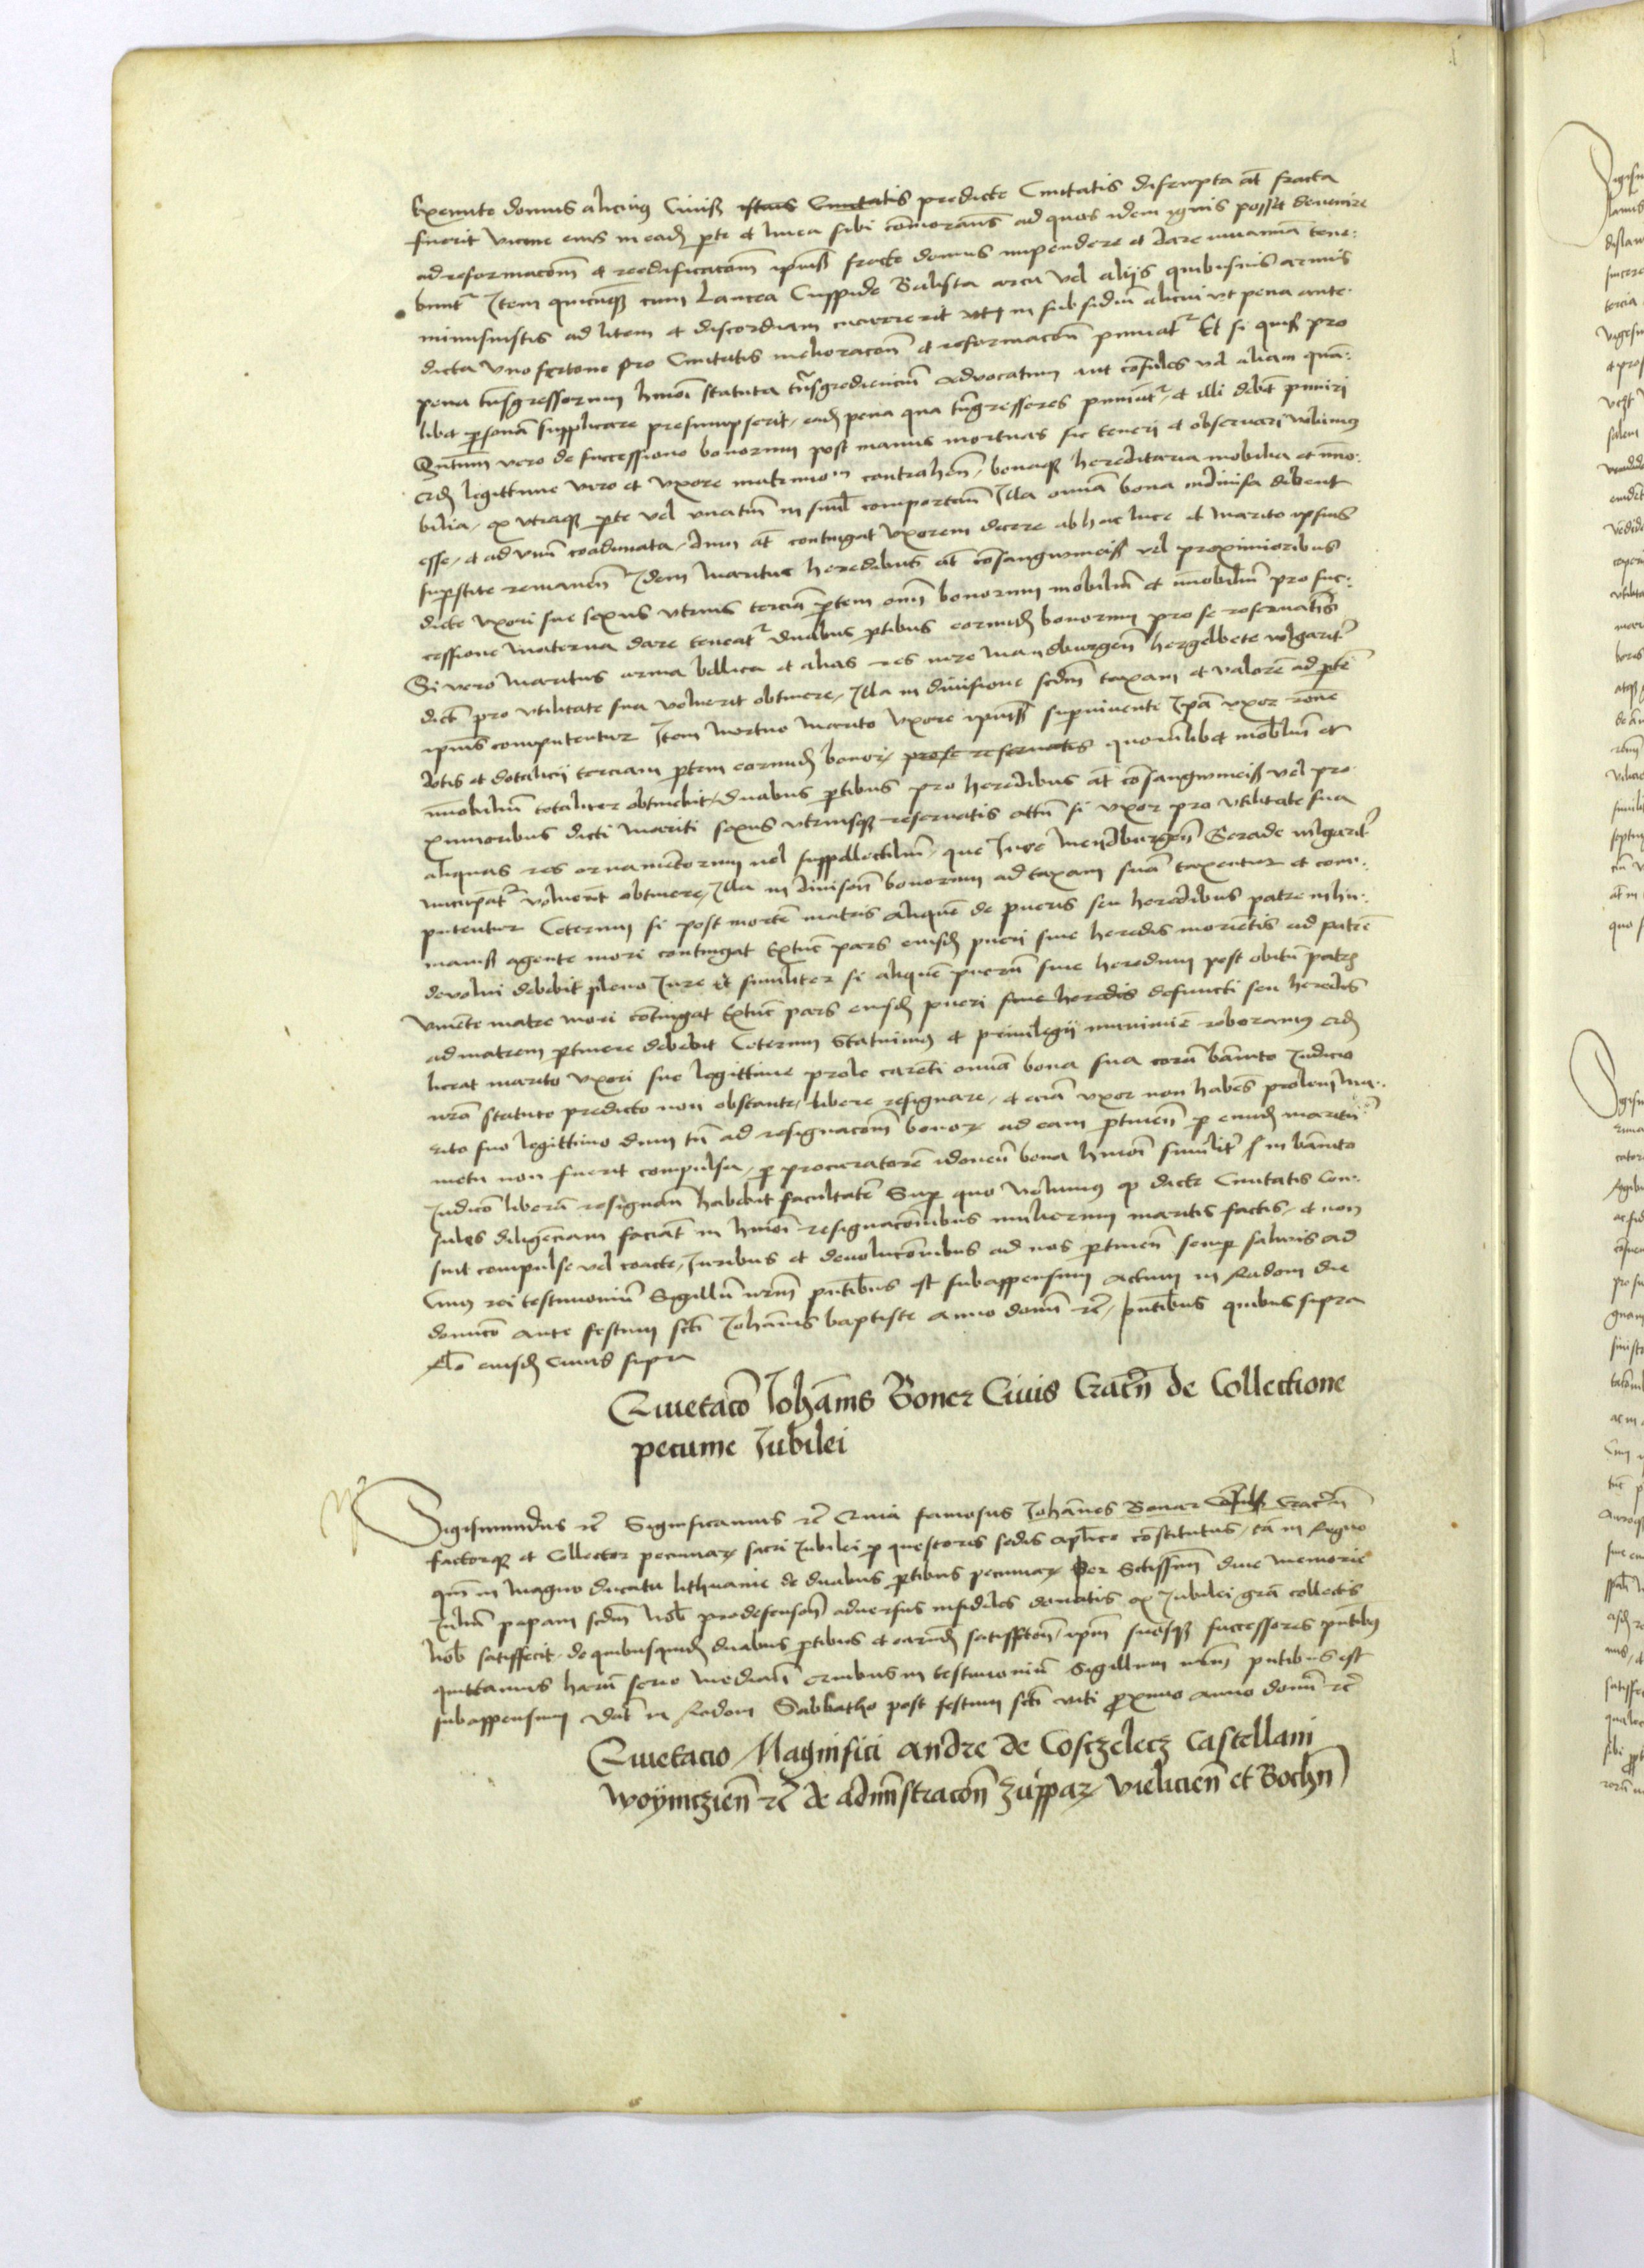 Exemito domus alicuius Civiß istius Civitatis predicte Civitatis disrupta at̄ fracta
fuerit vicine eius in eadꝫ p̱te et linea sibi co̅morant̄s ad quas idem ignis possit devenire
ad reformaco̅m et reedificaco̅m ipi̅uß fracte domus impendere et dare iuuamē tene-
bunt̄ Item quicu̅qꝫ cum Lancea Cuspide Balista arcu vel alijs quibusuis armis
ad litem et discordiam in subsidiu̅ alicui ut pena ante
dicta uno fertone pro Civitatis melioraco̅n et reformaco̅n puniat̄ Et si quiß pro
pena tn̅sgressorum hmo̅i statuta tn̅sgrediencium advocatum aut co̅sules vel aliam qua̅-
libet p̱sona̅ supplicare presumpserit, eadꝫ pena qua tn̅sgressores puniu̅t̄, et illi debe̅t puniri
Qn̅tum vero de successione bonorum post manus mortuas sic teneri et observari volumus
legittime viro et uxore matrimoⁱᵘᵐ contrahen̄, bonaqꝫ hereditaria mobilia et im̅o-
bilia, ex utraqꝫ p̱te vel unatim in simul comportata Illa omnia bona indivisa debent
esse, et ad unu̅ coadunata, dum at̄ contingat uxorem decere ab hac luce et marito ipsius
sup̱stite remanen̄ Idem maritus heredibus at̄ co̅sangwineiß vel proximioribus
dicte uxori sue sexus utrius tercia̅ p̱tem om̅i bonorum mobiliu̅ et im̅obiliu̅ pro suc-
cessione materna dare teneat̄ duabus p̱tibus eorundꝫ bonorum pro se reservatis
Si vero maritus arma bellica et alias res iure maydburgen̄ hergelbete wlgarit̄
dict̄ pro utilitate sua voluerit obtinere, Illa in divisione scdm̄ taxam et valore̅ ad p̱te̅
ipi̅us computentur Item mortuo marito uxore ipi̅uß sup̱vivente Ipa̅ uxor ro̅ne
dotis et dotalicij terciam p̱tem eorundꝫ bonoꝝ pro se reservatis quorumlibet mobiliu̅ et
im̅obiliu̅ totaliter obtinebit, duabus p̱tibus pro heredibus at̄ co̅sangwineiß vel pro
ximioribus dicti mariti sexus utriusqꝫ reservatis attn̄ si uxor pro utilitate sua
aliquas res ornamentorum vel suppellectiliu̅, que Iure meydburgen̄ Gerade wlgarit̄
nuncupat̄ voluerit obtinere, Illa in divisio̅n bonorum ad taxam sua̅ taxentur et com-
putentur Ceterum si post morte̅ matris alique̅ de pueris seu heredibus patre in hu-
maniß agente mori contingat Extu̅c pars eiusdꝫ pueri sive heredis morie̅tis ad patre̅
devolui debebit pleno Iure et similiter si alique̅ pueru̅ sive heredum post obitu̅ patrꝫ
vive̅te matre mori co̅tingat Extu̅c pars eiusdꝫ pueri sive heredis defuncti seu heredis
ad matrem p̱tinere debebit Ceterum Statuimus et privilegij munimi̅e roboramus
liceat marito uxori sue legittime prole care̅ti omnia bona sua cora̅ ba̅nito Iudicio
nr̅a statuto predicto non obstante, libere resignare, et eciā uxor non habe̅s prolem ma-
rito suo legittimo dum tn̄ ad resignaco̅m bonoꝝ ad eam p̱tinen̄ p̱ eundꝫ maritu̅
metu non fuerit compulsa, p̱ procuratore̅ idoneu̅ bona hmo̅i similit̄ in ba̅nito
Iudico̅ libera̅ resignan̄di habebit facultate̅ Sup̱ quo volumus qꝫ dicte Civitatis Con-
sules diligenciam facia̅t in hmo̅i resignaco̅nibus mulierum maritis factis, et non
sint compulse vel coacte, Iuribus et devoluco̅nibus ad nos p̱tinen̄ semp̱ salvis ad
Cuius rei testimoniu̅ Sigillu̅ nr̅m pn̅tibus est subappensum actum in Radom die
dominico ante festum scti̅ Joha̅nis baptiste anno domi̅ rc̄, pn̅tibus quibus supra
Rlo̅ eiusdꝫ cuius supra
Quietaco̅ Joha̅nis Boner Civis Crac̄n̄ de Collectione
pecunie Iubilei
Sigismundus rc̄ Significamus rc̄ Quia famosus Joha̅nes Bonar Co̅sul Crac̄n̄
factorqꝫ et Collector pecuniaꝝ sacri Iubilei p̱ questores sedis apl̅ice co̅stitutus, ta̅ in Regno
qm̅ in Magno ducatu lithuanie de duabus p̱tibus pecuniaꝝ per Sctissimu̅ dive memorie
Iuliu̅ papam scdm̄ Nob̅ pro defenso̅n adversus infideles donatis ex Iubilei gra̅ collectis
Nob̅ satisfecit, de quibusquidꝫ duabus p̱tibus et earundꝫ satisfcto̅n, ipm̄ suosqꝫ successores pn̅tibꝫ
quittamus haru̅ serie mediant̄ Quibus in testimoniu̅ Sigillum nr̅m pn̅tibus est
subappensum Dat̄ in Radom Sabbatho post festum scti̅ viti p̱ximo anno domi̅ rc̄
Quietacio Magnifici Andre de Cosczelecz Castellani
Woyniczien̄ rc̄ de administraco̅n zuppaꝝ vielicien̄ et Bochn̄